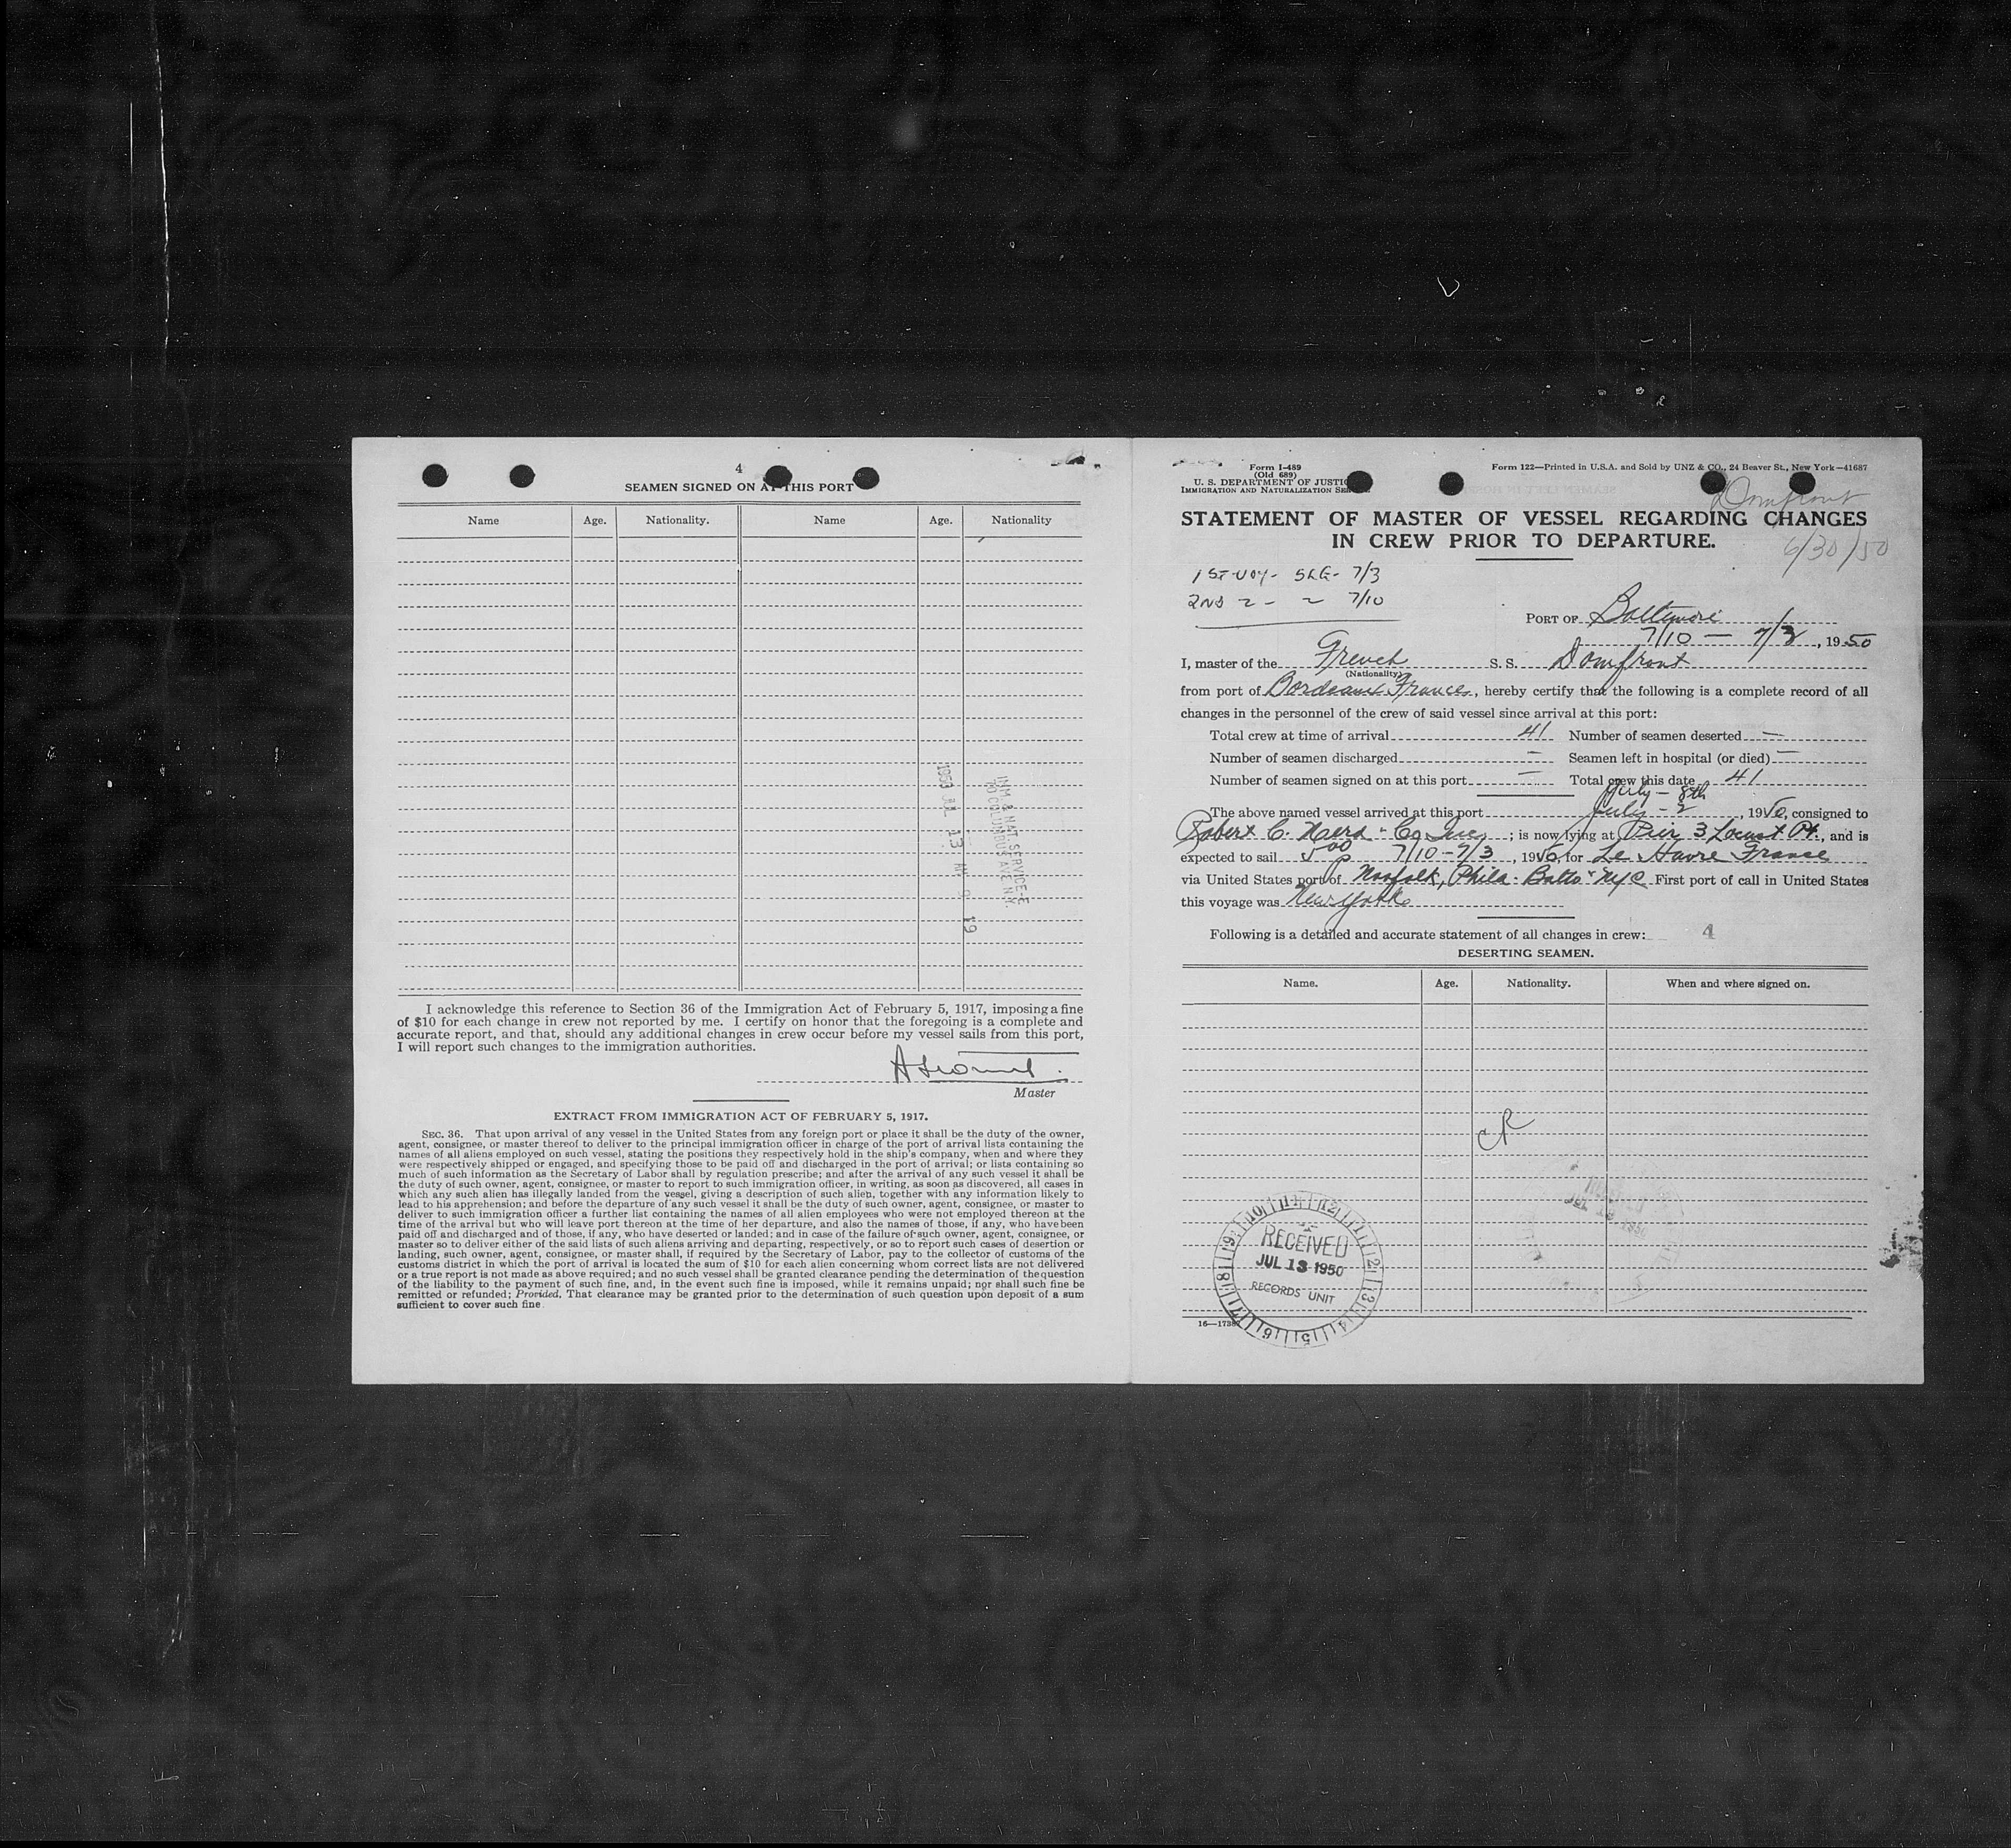 4
SEAMEN SIGNED ON AT THIS PORT
Name Age. Nationality. Name Age. Nationality
1950 JUL 13 AM 9 19
IMM & NAT SERVICE
70 COLUMBUS AVE N Y
I acknowledge this reference to Section 36 of the Immigration Act of February 5, 1917, imposing a fine
of $10 for each change in crew not reported by me. I certify on honor that the foregoing is a complete and
accurate report, and that, should any additional changes in crew occur before my vessel sails from this port,
I will report such changes to the immigration authorities.
Master
EXTRACT FROM IMMIGRATION ACT OF FEBRUARY 5, 1917.
SEC. 36. That upon arrival of any vessel in the United States from any foreign port or place it shall be the duty of the owner,
agent, consignee, or master thereof to deliver to the principal immigration officer in charge of the port of arrival lists containing the
names of all aliens employed on such vessel, stating the positions they respectively hold in the ship's company, when and where they
were respectively shipped or engaged, and specifying those to be paid off and discharged in the port of arrival; or lists containing so
much of such information as the Secretary of Labor shall by regulation prescribe; and after the arrival of any such vessel it shall be
the duty of such owner, agent, consignee, or master to report to such immigration officer, in writing, as soon as discovered, all cases in
which any such alien has illegally landed from the vessel, giving a description of such alien, together with any information likely to
lead to his apprehension; and before the departure of any such vessel it shall be the duty of such owner, agent, consignee, or master to
deliver to such immigration officer a further list containing the names of all alien employees who were not employed thereon at the
time of the arrival but who will leave port thereon at the time of her departure, and also the names of those, if any, who have been
paid off and discharged and of those, if any, who have deserted or landed; and in case of the failure of such owner, agent, consignee, or
master so to deliver either of the said lists of such aliens arriving and departing, respectively, or so to report such cases of desertion or
landing, such owner, agent, consignee, or master shall, if required by the Secretary of Labor, pay to the collector of customs of the
customs district in which the port of arrival is located the sum of $10 for each alien concerning whom correct lists are not delivered
or a true report is not made as above required; and no such vessel shall be granted clearance pending the determination of the question
of the liability to the payment of such fine, and, in the event such fine is imposed, while it remains unpaid; nor shall such fine be
remitted or refunded; Provided, That clearance may be granted prior to the determination of such question upon deposit of a sum
sufficient to cover such fine.
Form I-489
(Old 689)
U. S. DEPARTMENT OF JUSTICE
IMMIGRATION AND NATURALIZATION SERVICE
Form 122—Printed in U.S.A. and Sold by UNZ & CO., 24 Beaver St., New York—41687
Domfront
STATEMENT OF MASTER OF VESSEL REGARDING CHANGES
IN CREW PRIOR TO DEPARTURE.
6/30/50
1ST-VOY- SLG- 7/3
2ND 7/10
PORT OF Baltimore
7/10 — 7/3, 1950
I, master of the French S. S. Domfront
(Nationality)
from port of Bordeaux France, hereby certify that the following is a complete record of all
changes in the personnel of the crew of said vessel since arrival at this port:
Total crew at time of arrival 41 Number of seamen deserted —
Number of seamen discharged — Seamen left in hospital (or died) —
Number of seamen signed on at this port — Total crew this date 41
July - 8th
The above named vessel arrived at this port July - 2, 1950, consigned to
Robert C. & Co Inc; is now lying at Pier 3 Locust Pt., and is
expected to sail 5 00 p 7/10-7/3, 1950, for Le Havre France
via United States port of Norfolk, Phila - Balto & NYC First port of call in United States
this voyage was New York
Following is a detailed and accurate statement of all changes in crew: 4
DESERTING SEAMEN.
Name. Age. Nationality. When and where signed on.
RECEIVED
JUL 13 1950
RECORDS UNIT